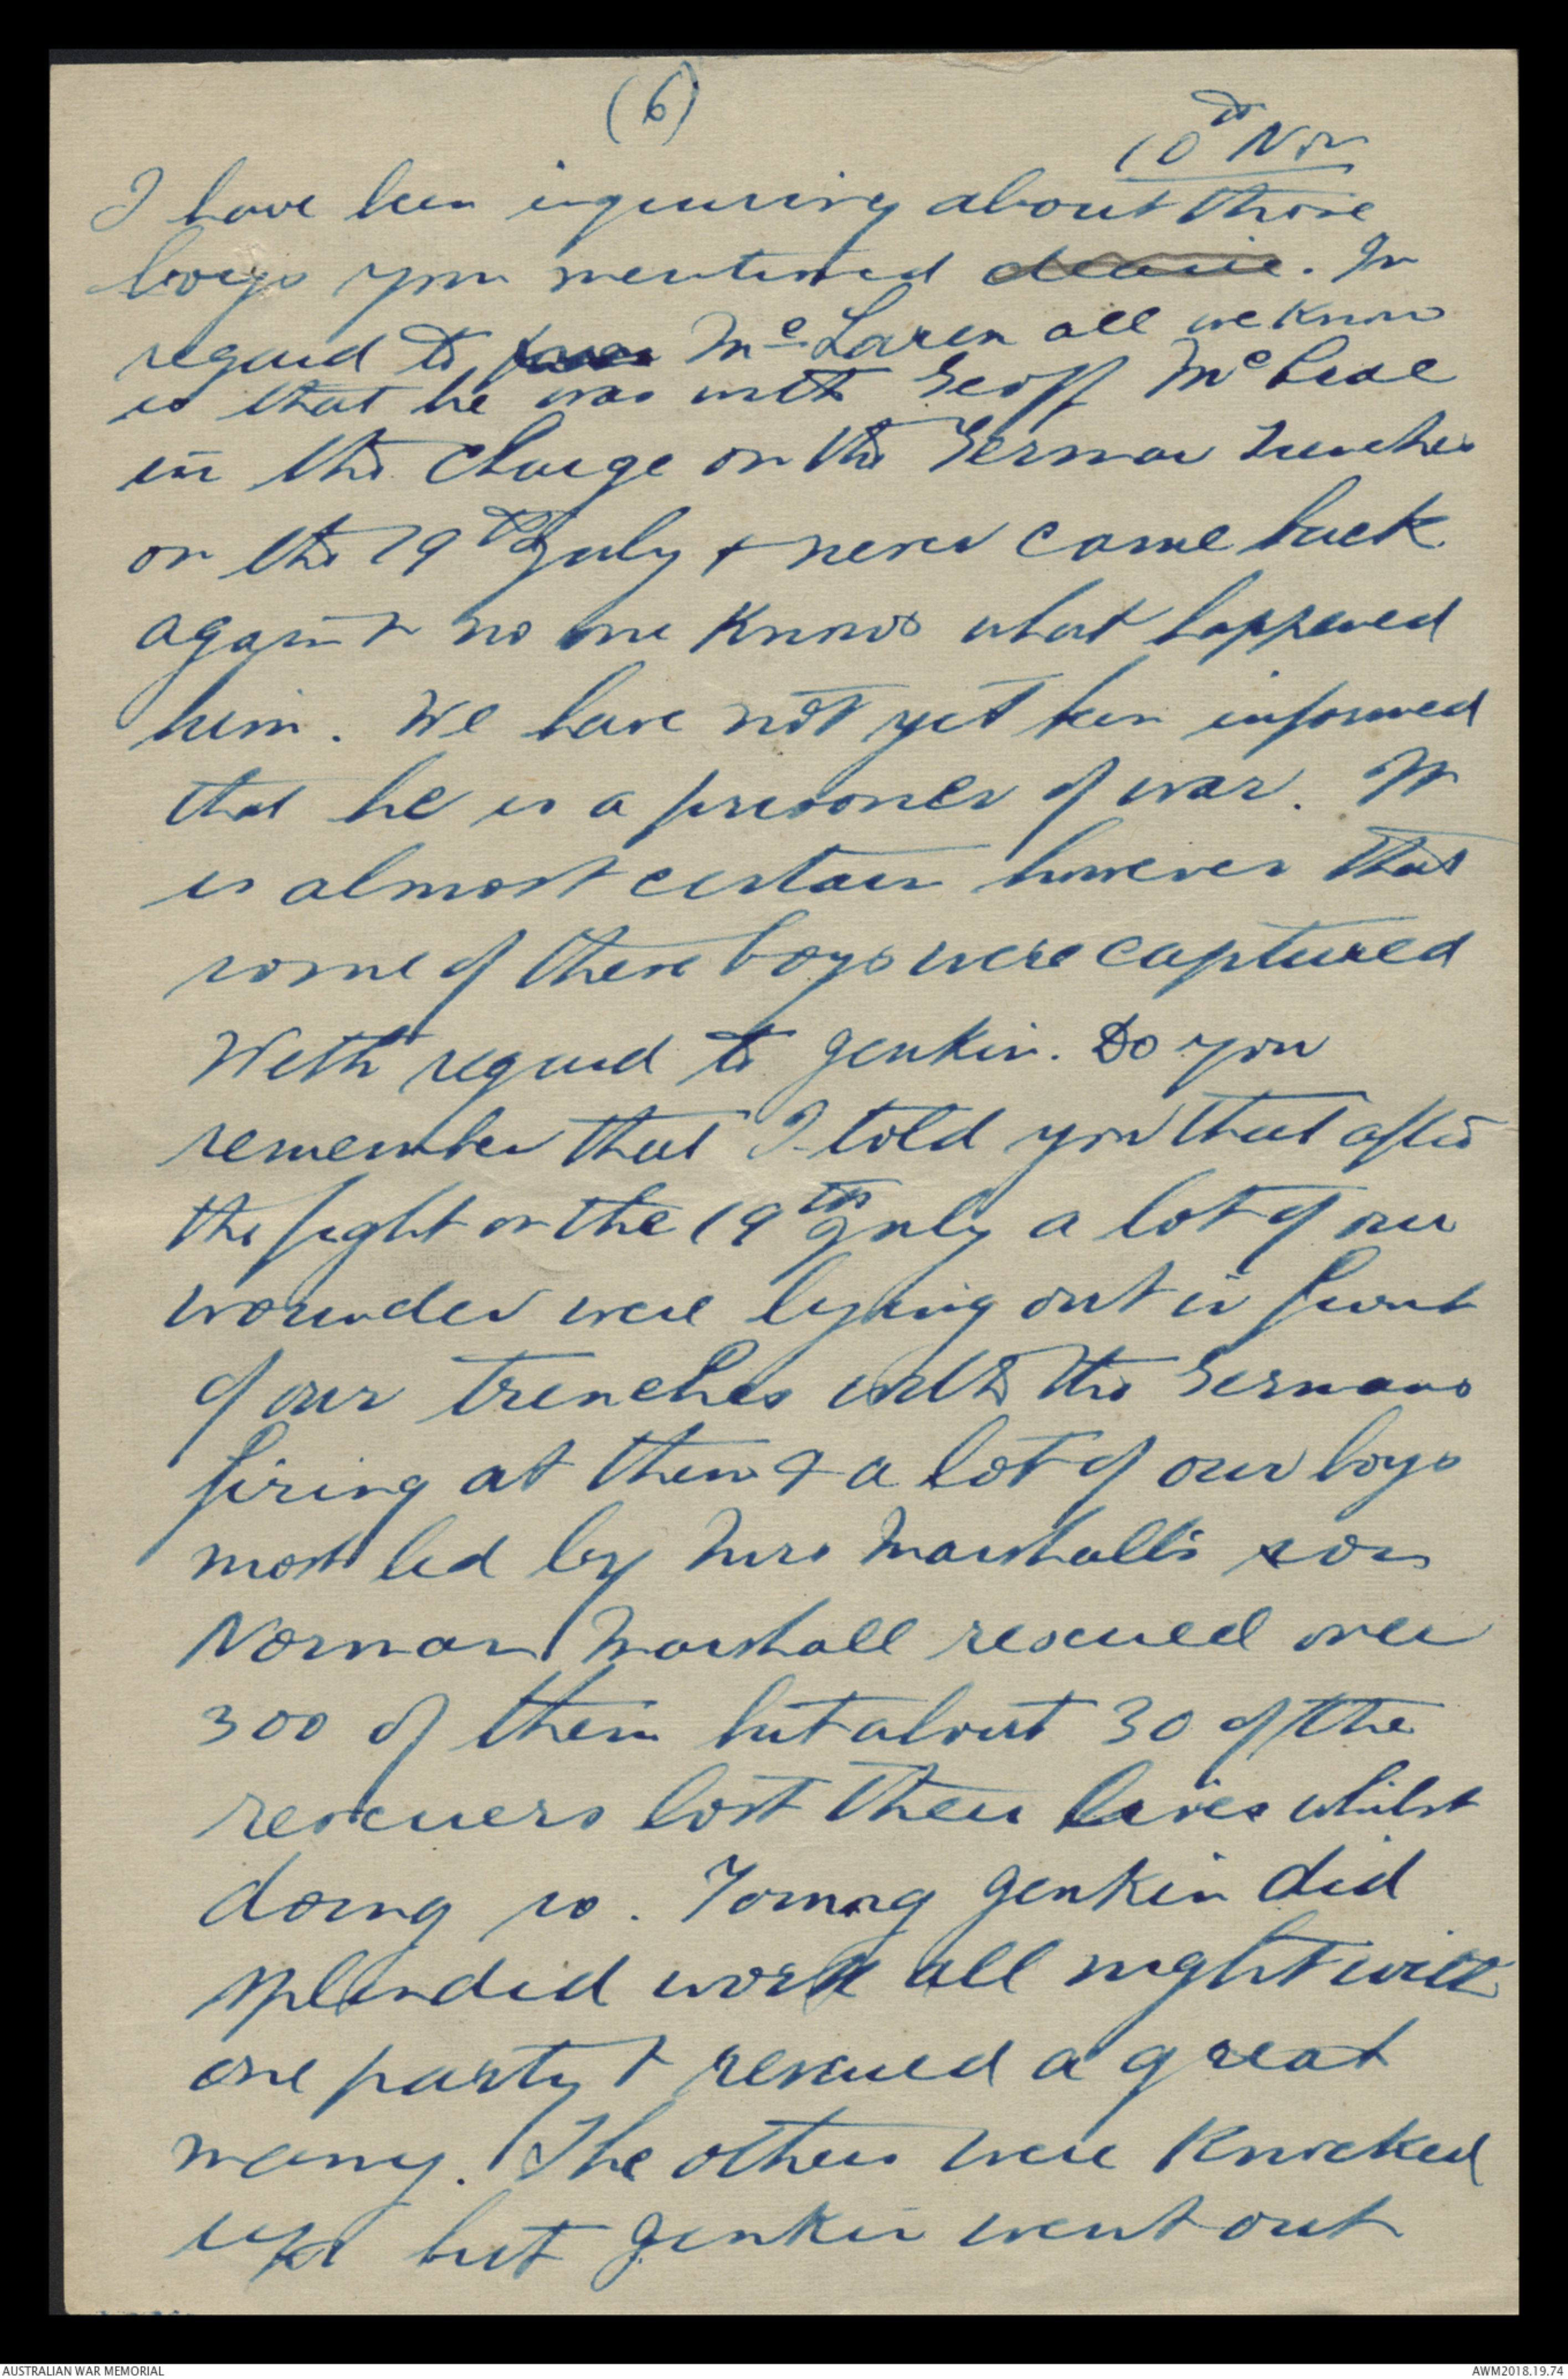 (6)
10th Nov
I have been inquiring about those
boys you mentioned. In
regard to McLaren all we know
is that he was with Geoff McCrae
in the charge on the German trenches
on the 19th July & never came back
again & no one knows what happened
him. We have not yet been informed
that he is a prisoner of war. It
is almost certain however that
some of these boys were captured
With regard to Jenkin. Do you
remember that I told you that after
the fight on the 19th July a lot of our
wounded were lying out in front
of our trenches with the Germans
firing at them & a lot of our boys
most led by Mrs Marshall's son
Norman Marshall rescued over
300 of them but about 30 of the
rescuers lost their lives whilst
doing so. Young Jenkin did
splendid work all night with
one party & rescued a great
many. The others were knocked
up but Jenkin went out
AUSTRALIAN WAR MEMORIAL
AWM2018.19.74